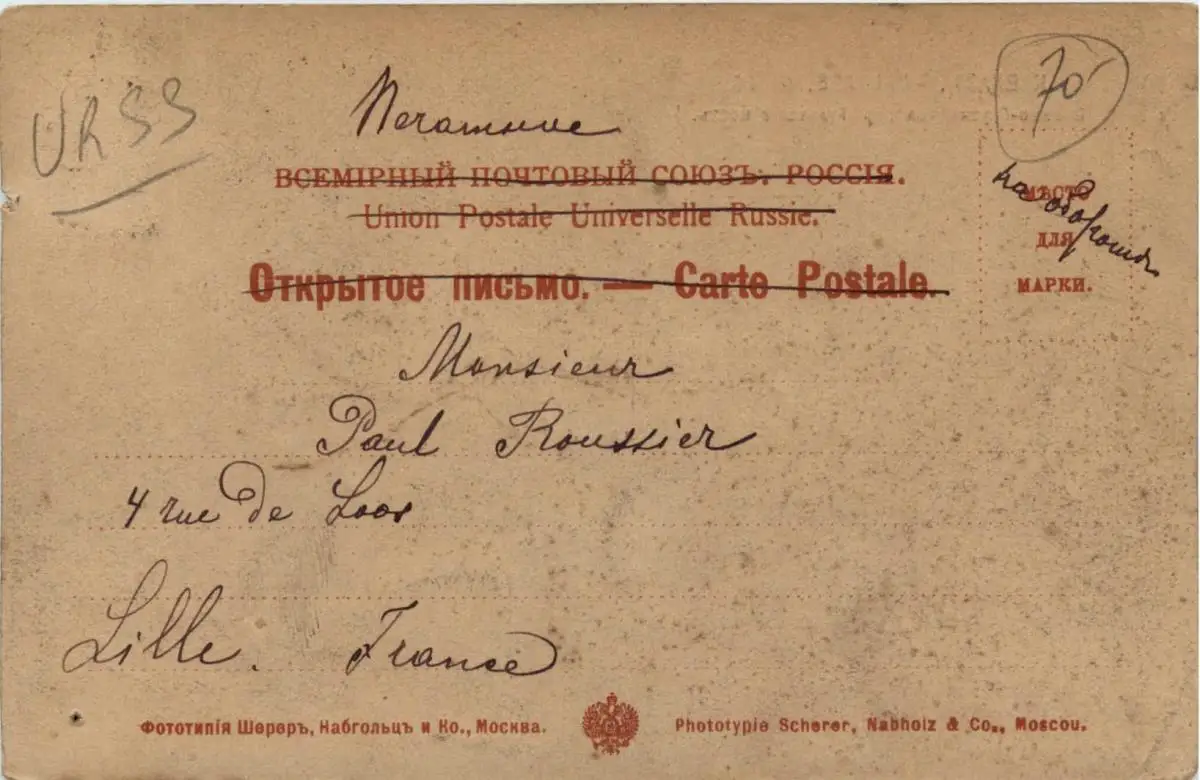 URSS
70
Печатное
ВСЕМІРНЫЙ ПОЧТОВЫЙ СОЮЗЪ. РОССІЯ.
Union Postale Universelle Russie.
Открытое письмо. — Carte Postale.
МѢСТО
ДЛЯ
МАРКИ.
на оборотѣ
Monsieur
Paul Roussier
4 rue de Loos
Lille. France
Фототипія Шереръ, Набгольцъ и Ко., Москва.
Phototypie Scherer, Nabholz & Co., Moscou.